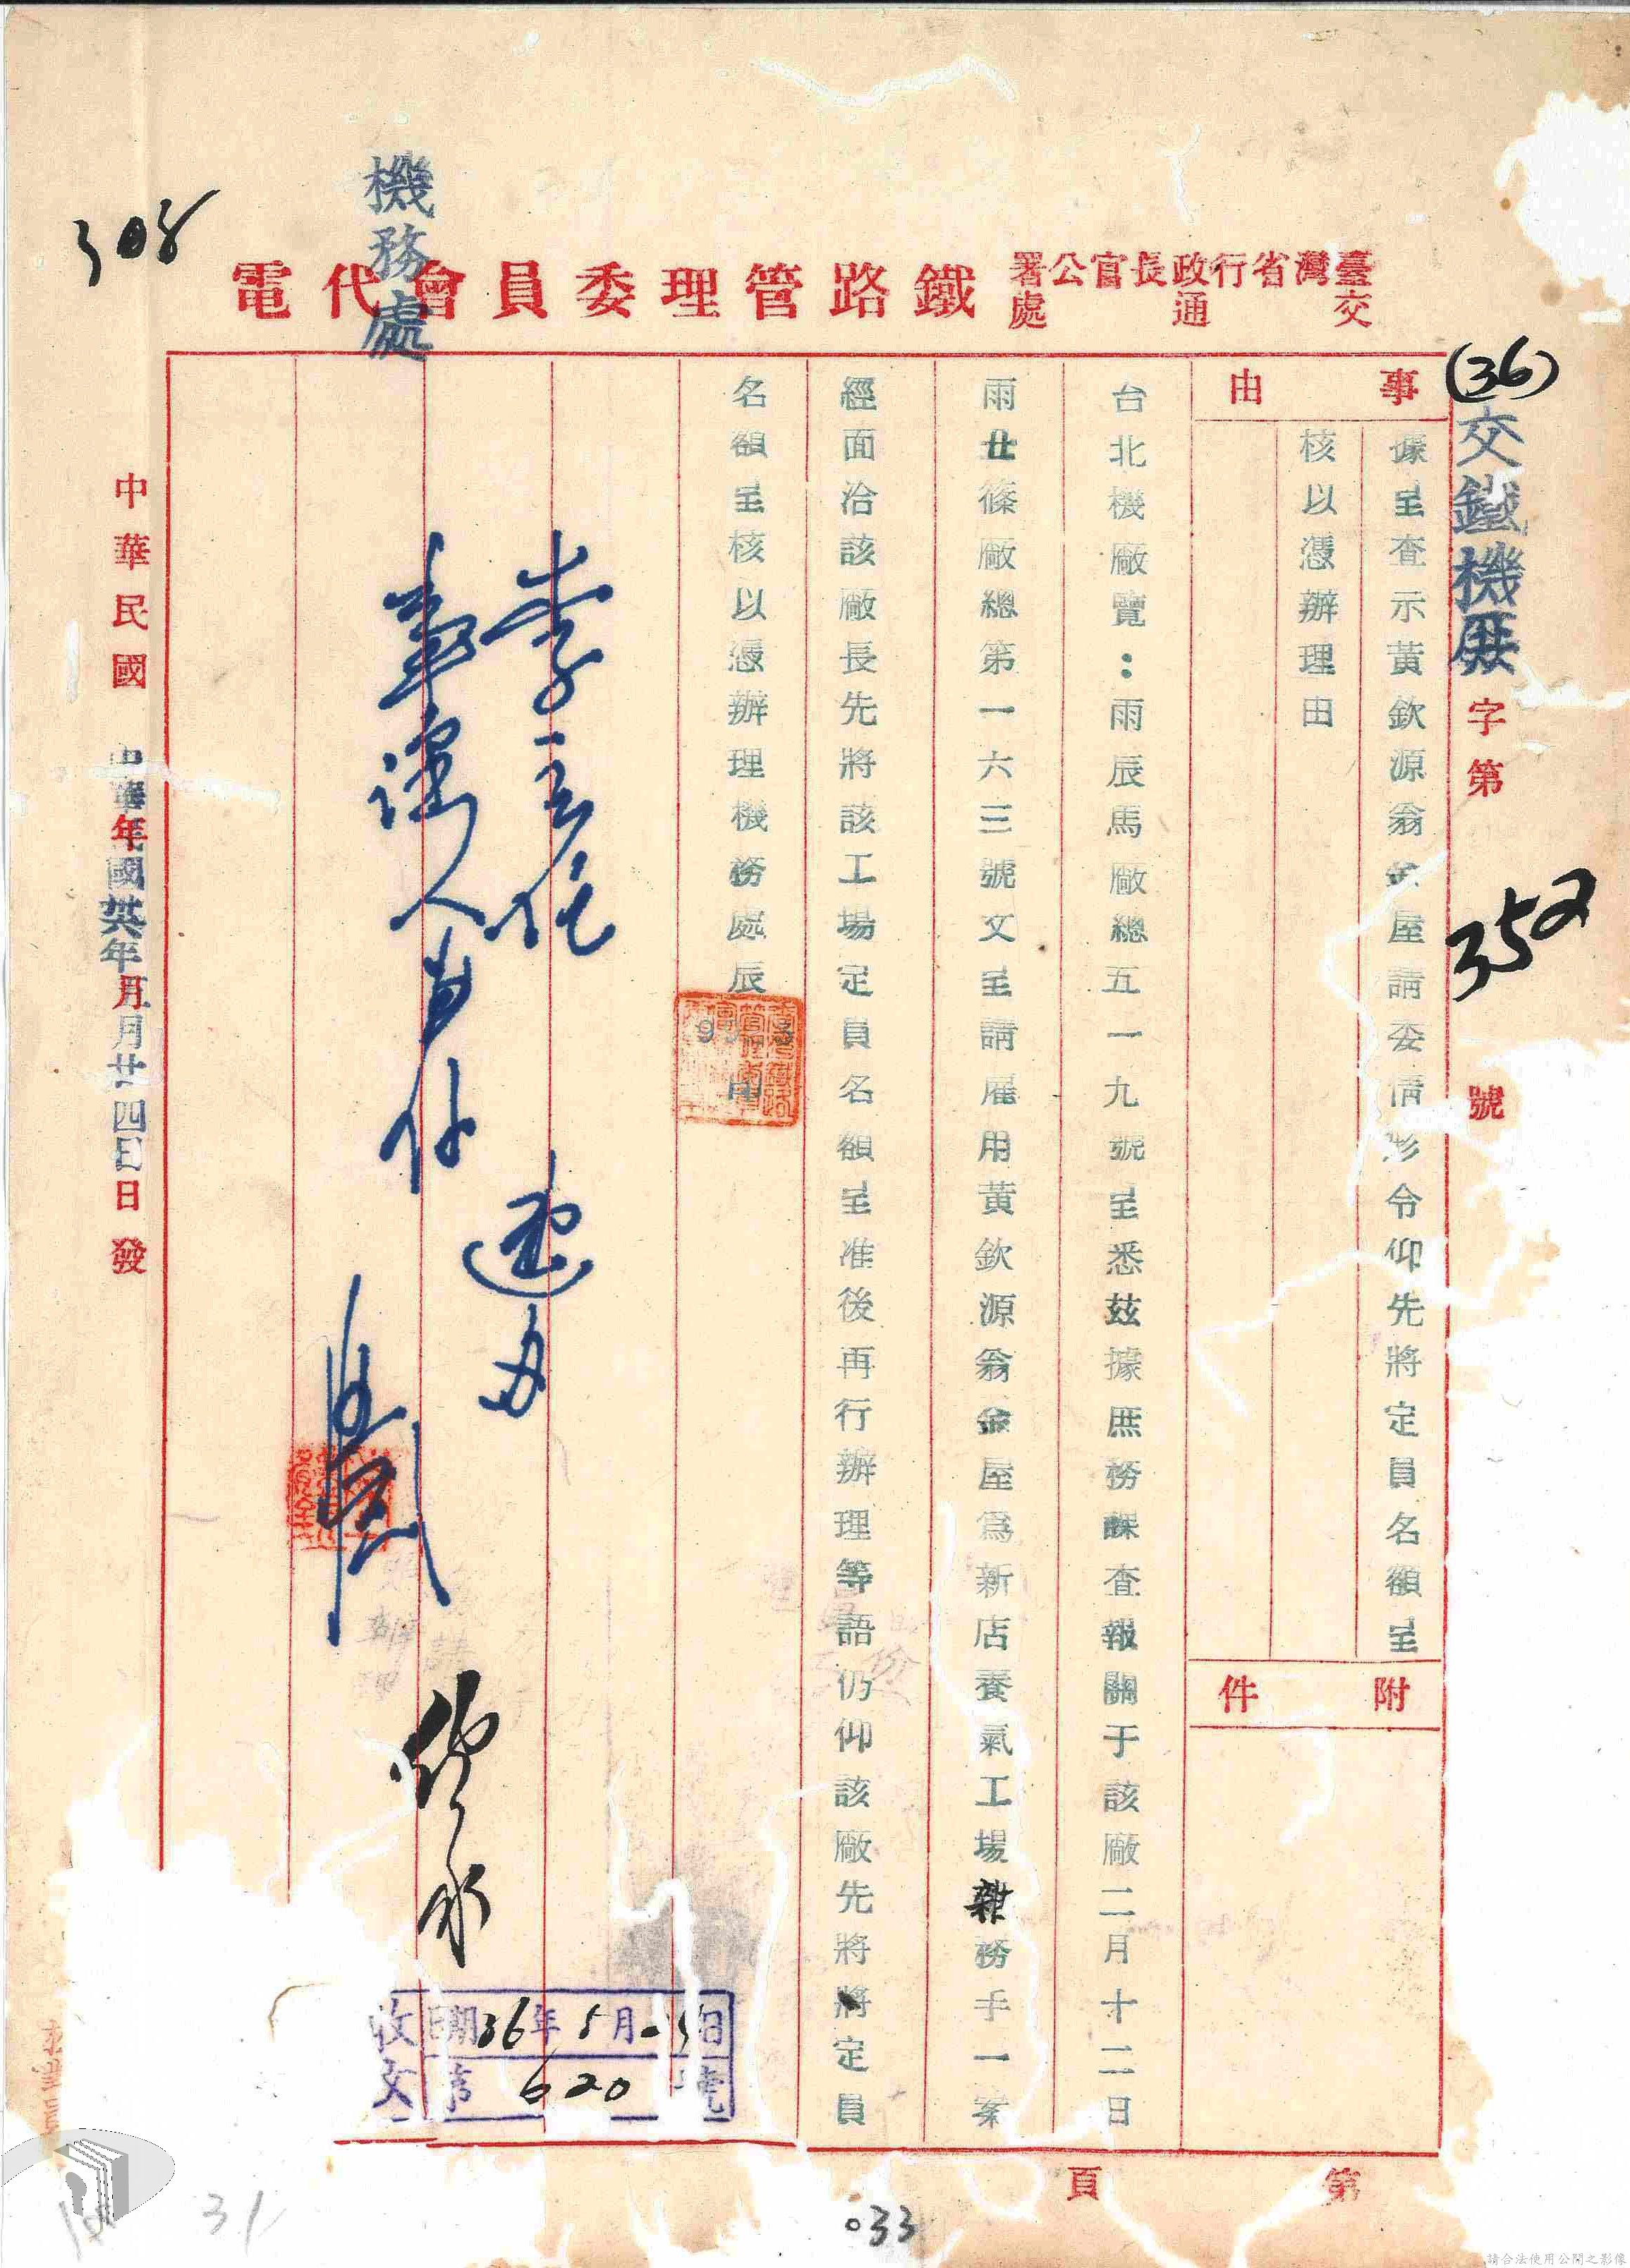 臺灣省行政長官公署
交通處
鐵路管理委員會代電
機務處
308
(36)交鐵機厰字第3522號
事由
據呈查示黃欽源翁金屋請委情形令仰先將定員名額呈
核以憑辦理由
附件
台北機廠覽：雨辰馬廠總五一九號呈悉茲據庶務課查報關于該廠二月十二日
雨廿篠廠總第一六三號文呈請雇用黃欽源翁金屋爲新店養氣工場雜務手一案
經面洽該廠長先將該工場定員名額呈准後再行辦理等語仍仰該廠先將將定員
名額呈核以憑辦理機務處辰
印
李主任
速力
收文
日期36年5月
第620號
中華民國
年月日發
中華民國卅六年五月廿四日
第頁
033
31
請合法使用公開之影像